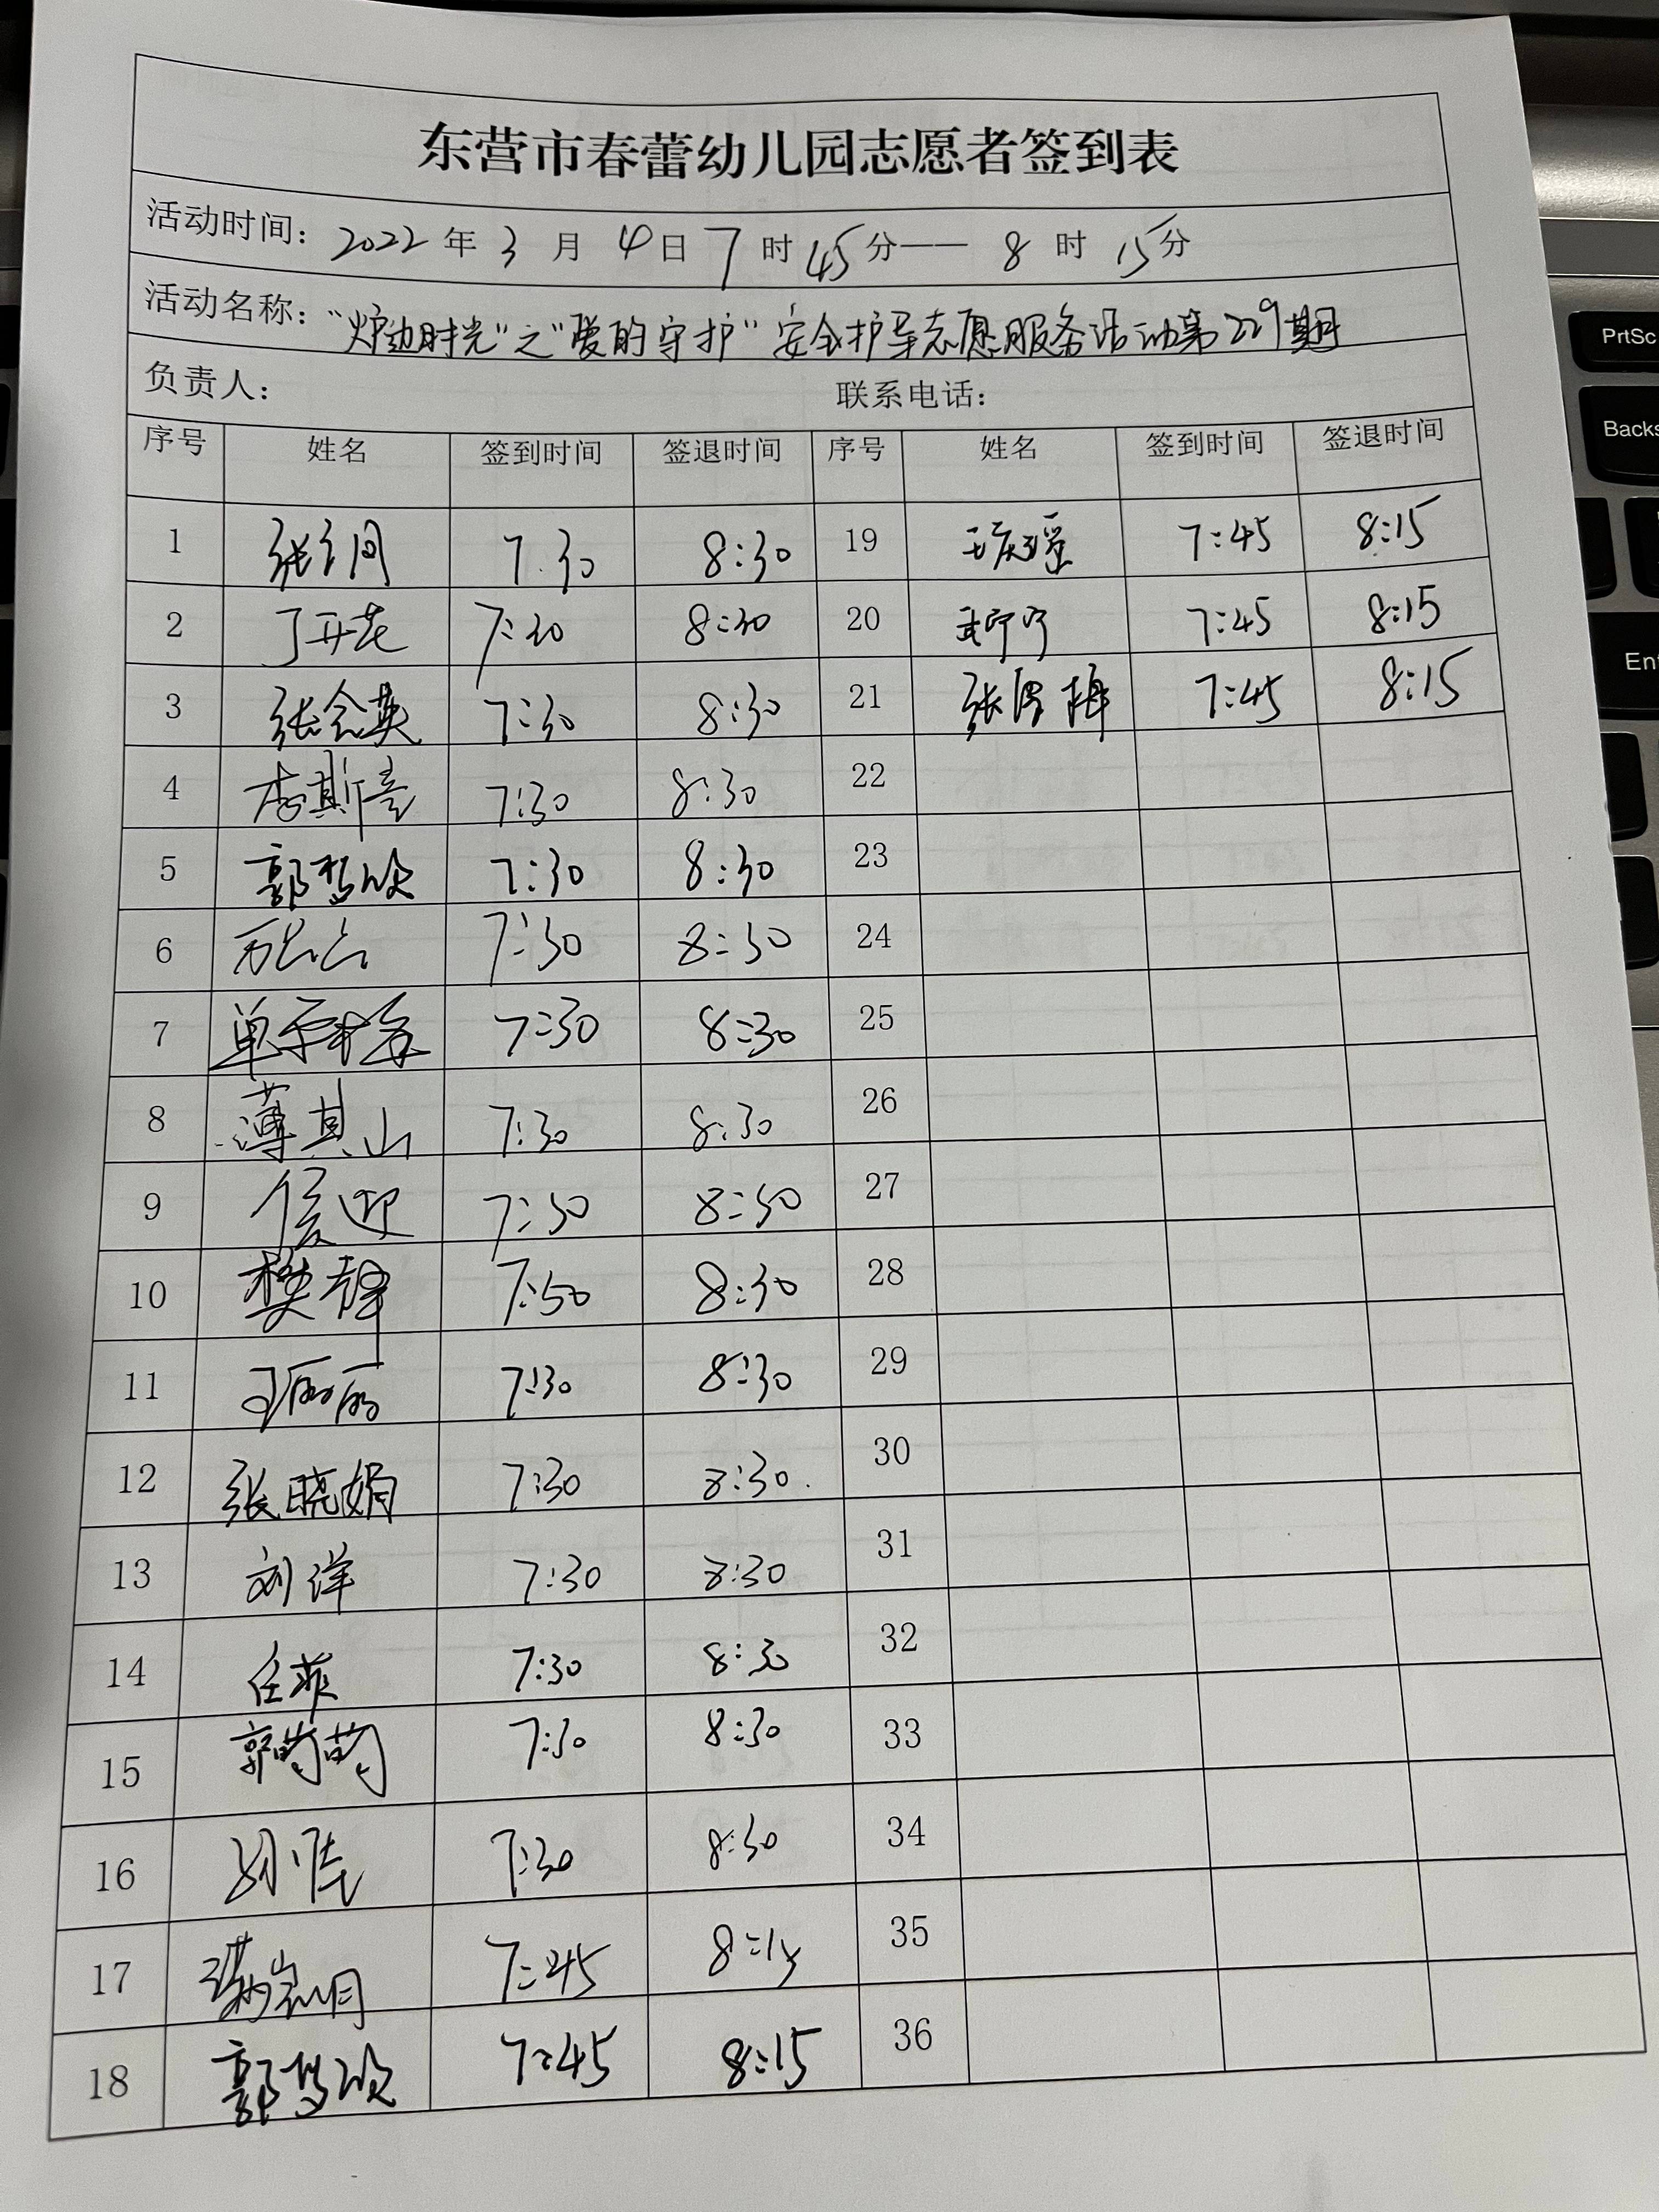 东营市春蕾幼儿园志愿者签到表
活动时间：2022年3月4日7时45分——8时15分
活动名称："炉边时光"之"爱的守护"安全护导志愿服务活动第229期
负责人： 联系电话：
序号 姓名 签到时间 签退时间 序号 姓名 签到时间 签退时间
1 7:30 8:30 19 7:45 8:15
2 丁开花 7:30 8:30 20 7:45 8:15
3 张会英 7:30 8:30 21 7:45 8:15
4 7:30 8:30 22
5 郭哲欣 7:30 8:30 23
6 7:30 8:30 24
7 7:30 8:30 25
8 薄其山 7:30 8:30 26
9 侯迎 7:30 8:30 27
10 樊静 7:30 8:30 28
11 王丽丽 7:30 8:30 29
12 张晓娟 7:30 8:30 30
13 刘洋 7:30 8:30 31
14 任菲 7:30 8:30 32
15 郭萌萌 7:30 8:30 33
16 7:30 8:30 34
17 7:45 8:15 35
18 郭哲欣 7:45 8:15 36
PrtSc
Backs
Ent